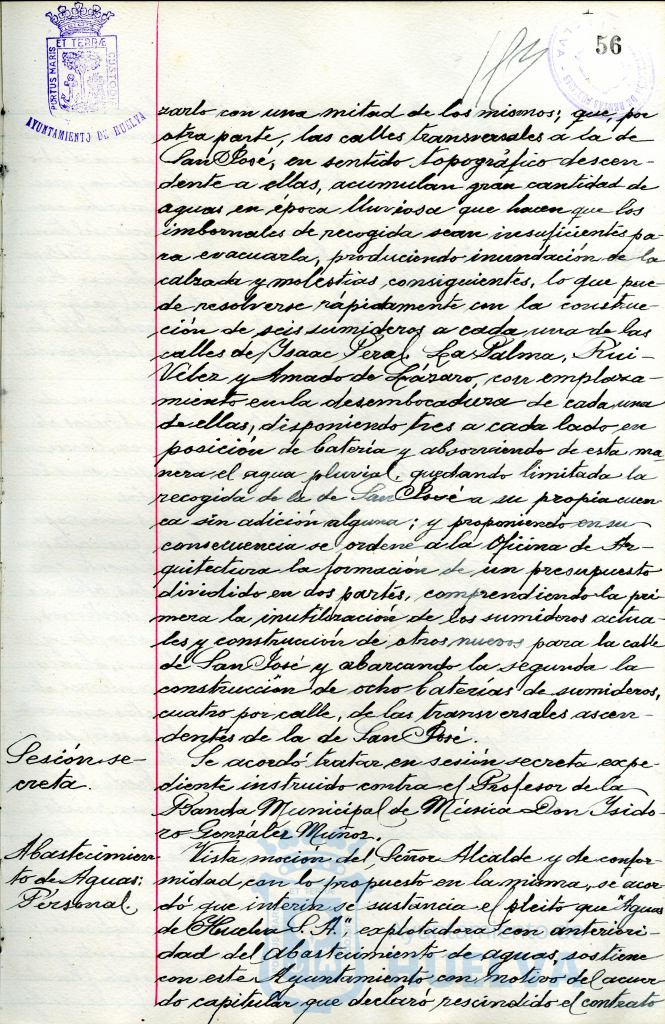 56
PORTUS MARIS
ET TERRÆ
CUSTODIA
AYUNTAMIENTO DE HUELVA
zarlo con una mitad de los mismos; que, por
otra parte, las calles transversales a la de
San José, en sentido topográfico descen-
dente a ellas, acumulan gran cantidad de
aguas en época lluviosa que hacen que los
imbornales de recogida sean insuficientes pa-
ra evacuarla, produciendo inundación de la
calzada y molestias consiguientes, lo que pue-
de resolverse rápidamente con la construc-
ción de seis sumideros a cada una de las
calles de Isaac Peral, La Palma, Rui-
Vélez y Amado de Lázaro, con emplaza-
miento en la desembocadura de cada una
de ellas, disponiendo tres a cada lado, en
posición de batería y absorviendo de esta ma-
nera el agua pluvial, quedando limitada la
recogida de la de San José a su propia cuen-
ca sin adición alguna; y proponiendo en su
consecuencia se ordene a la Oficina de Ar-
quitectura la formación de un presupuesto
dividido en dos partes, comprendiendo la pri-
mera la inutilización de los sumideros actua-
les y construcción de otros nuevos para la calle
de San José y abarcando la segunda la
construcción de ocho baterías de sumideros,
cuatro por calle, de las transversales ascen-
dentes de la de San José.
Sesión se-
creta.
Se acordó tratar en sesión secreta expe-
diente instruido contra el Profesor de la
Banda Municipal de Música Don Isido-
ro González Muñoz.
Abastecimien-
to de Aguas:
Personal
Vista moción del Señor Alcalde y de confor-
midad con lo propuesto en la misma, se acor-
dó que interin se sustancia el pleito que "Aguas
de Huelva S. A." explotadora con anteriori-
dad del abastecimiento de aguas, sostiene
con este Ayuntamiento con motivo del acuer-
do capitular que declaró rescindido el contrato
HUELVA